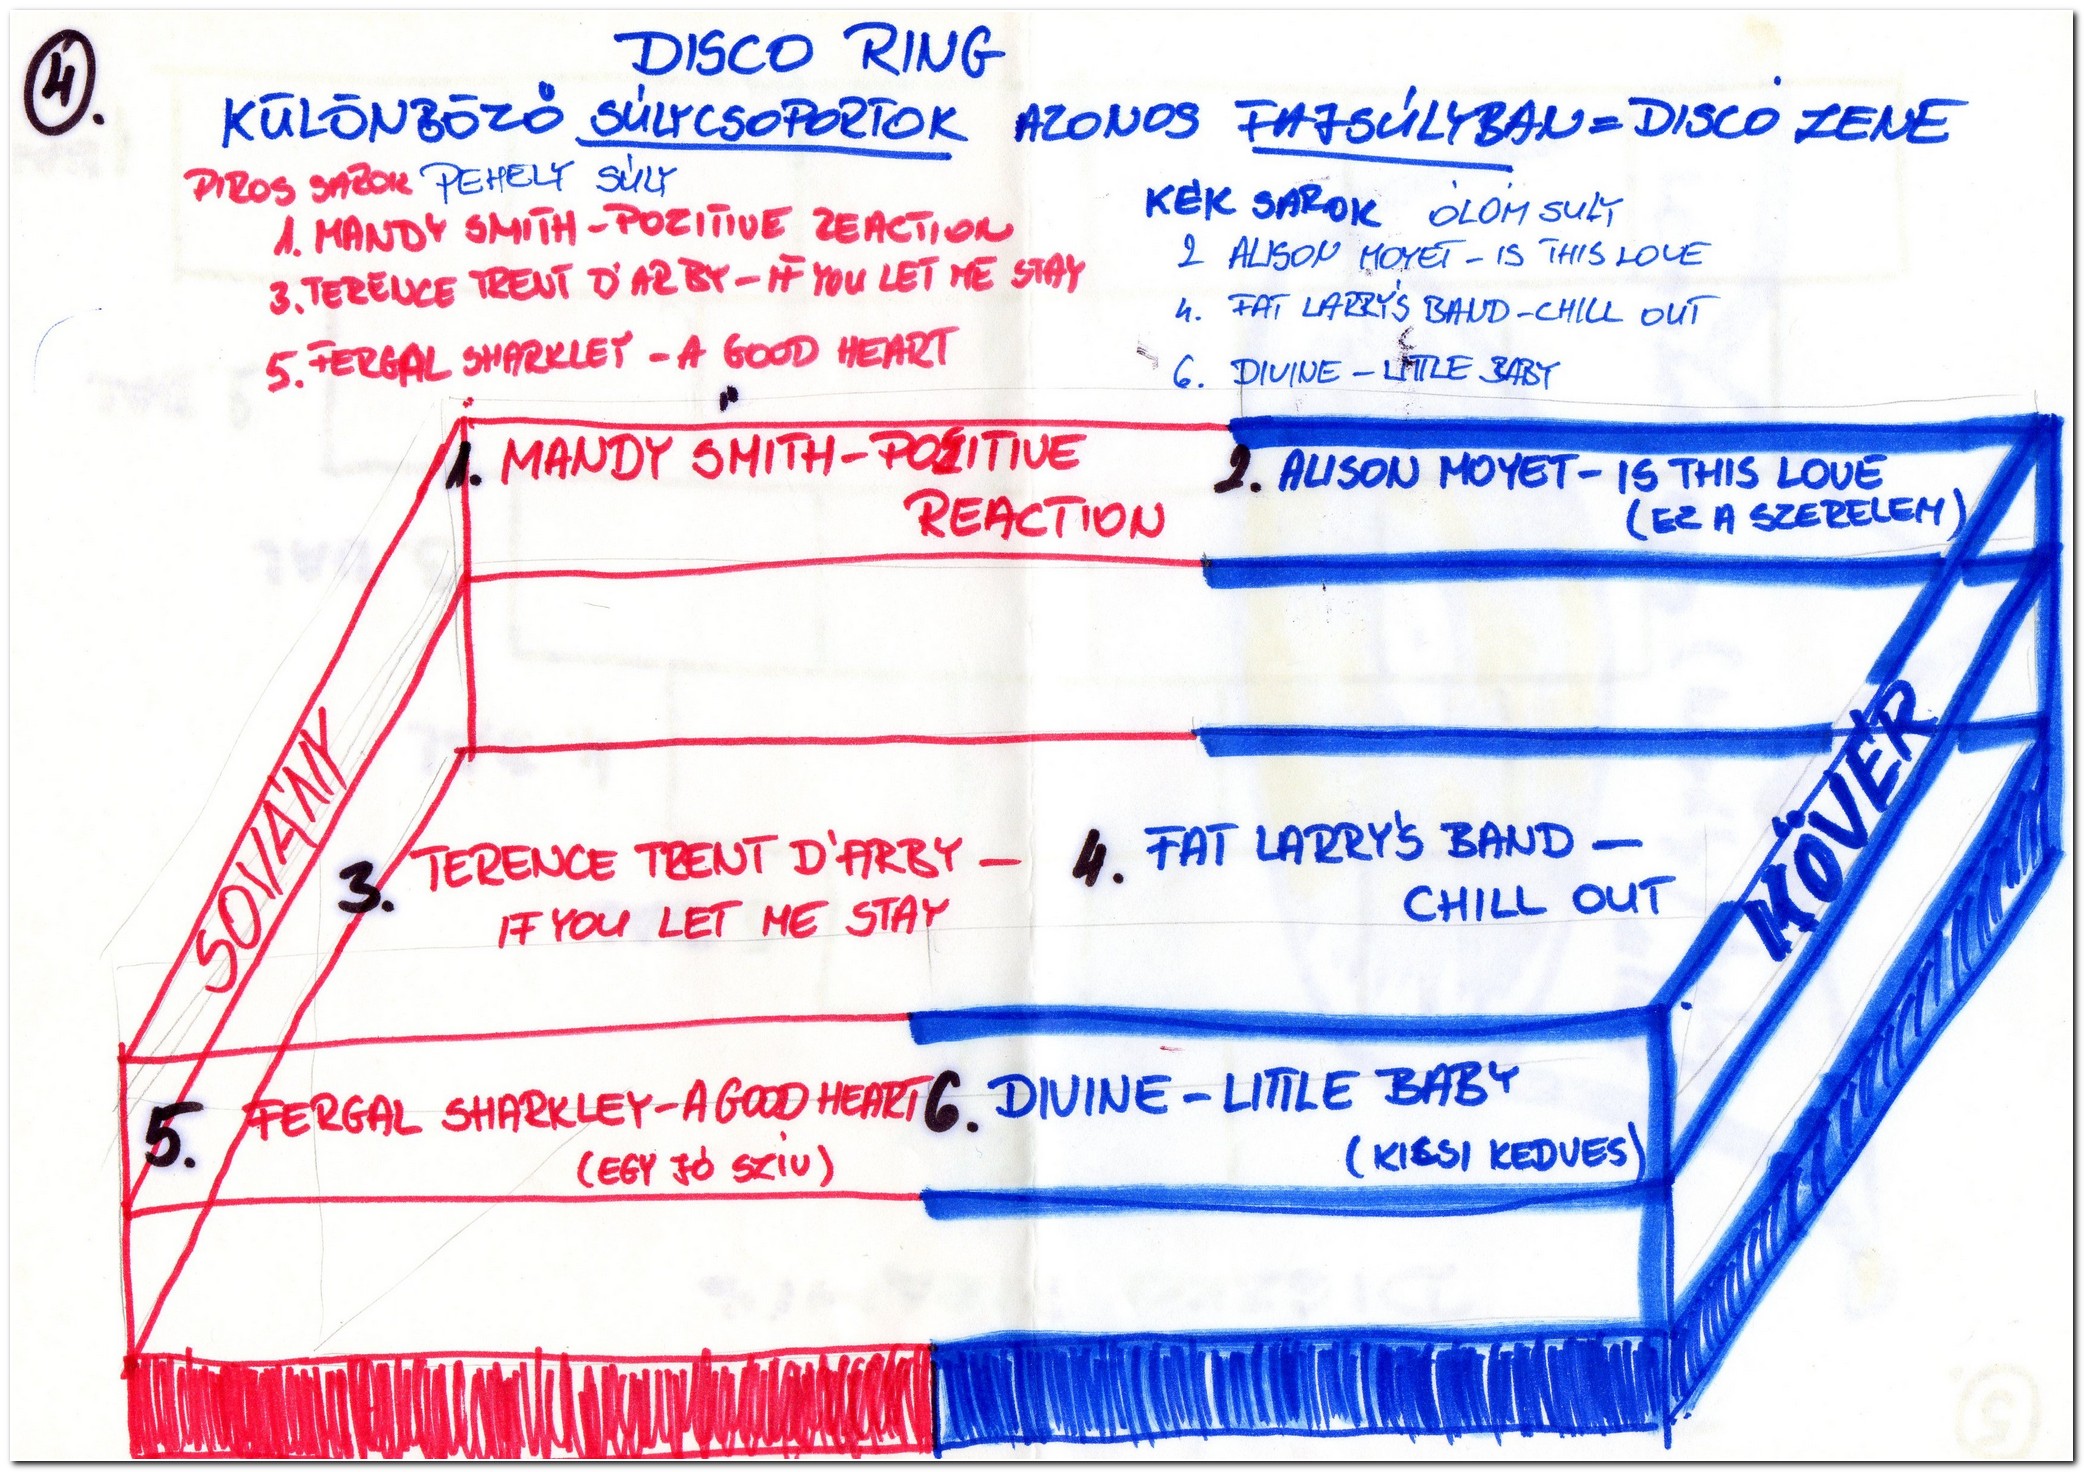 4.
DISCO RING
KÜLÖNBÖZŐ SÚLYCSOPORTOK AZONOS FAJSÚLYBAN = DISCO ZENE
PIROS SAROK PEHELY SÚLY
1. MANDY SMITH - POZITIVE REACTION
3. TERENCE TRENT D'ARBY - IF YOU LET ME STAY
5. FERGAL SHARKLEY - A GOOD HEART
KÉK SAROK ÓLOM SULY
2 ALISON MOYET - IS THIS LOVE
4. FAT LARRY'S BAND - CHILL OUT
6. DIVINE - LITTLE BABY
1. MANDY SMITH - POZITIVE
REACTION
2. ALISON MOYET - IS THIS LOVE
(EZ A SZERELEM)
SOVÁNY
KÖVÉR
3. TERENCE TRENT D'ARBY -
IF YOU LET ME STAY
4. FAT LARRY'S BAND -
CHILL OUT
5. FERGAL SHARKLEY - A GOOD HEART
(EGY JÓ SZIV)
6. DIVINE - LITTLE BABY
(KICSI KEDVES)